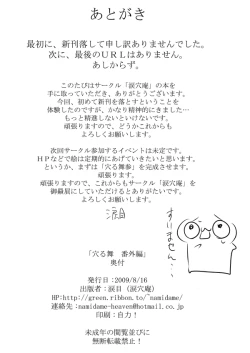 あとがき
最初に、新刊落して申し訳ありませんでした。
次に、最後のURLはありません。
あしからず。
このたびはサークル「涙穴庵」の本を
手に取っていただき、ありがとうございます。
今回、初めて新刊を落とすということを
体験したのですが、かなり精神的にきました…
もっと精進しないといけないです。
頑張りますので、どうかこれからも
よろしくお願いします。
次回サークル参加するイベントは未定です。
HPなどで絵は定期的にあげていきたいです。
というか、まずは「穴る舞参」を完成させます。
頑張ります。
頑張りますので、これからもサークル「涙穴庵」を
御贔屓にしていただけるとありがたいです。
涙目
すいません…
「穴る舞 番外編」
奥付
発行日:2009/8/16
出版者:涙目(涙穴庵)
HP:http://green.ribbon.to/~namidame/
連絡先:namidame-heaven@hotmail.co.jp
印刷:自力!
未成年の閲覧並びに
無断転載禁止!